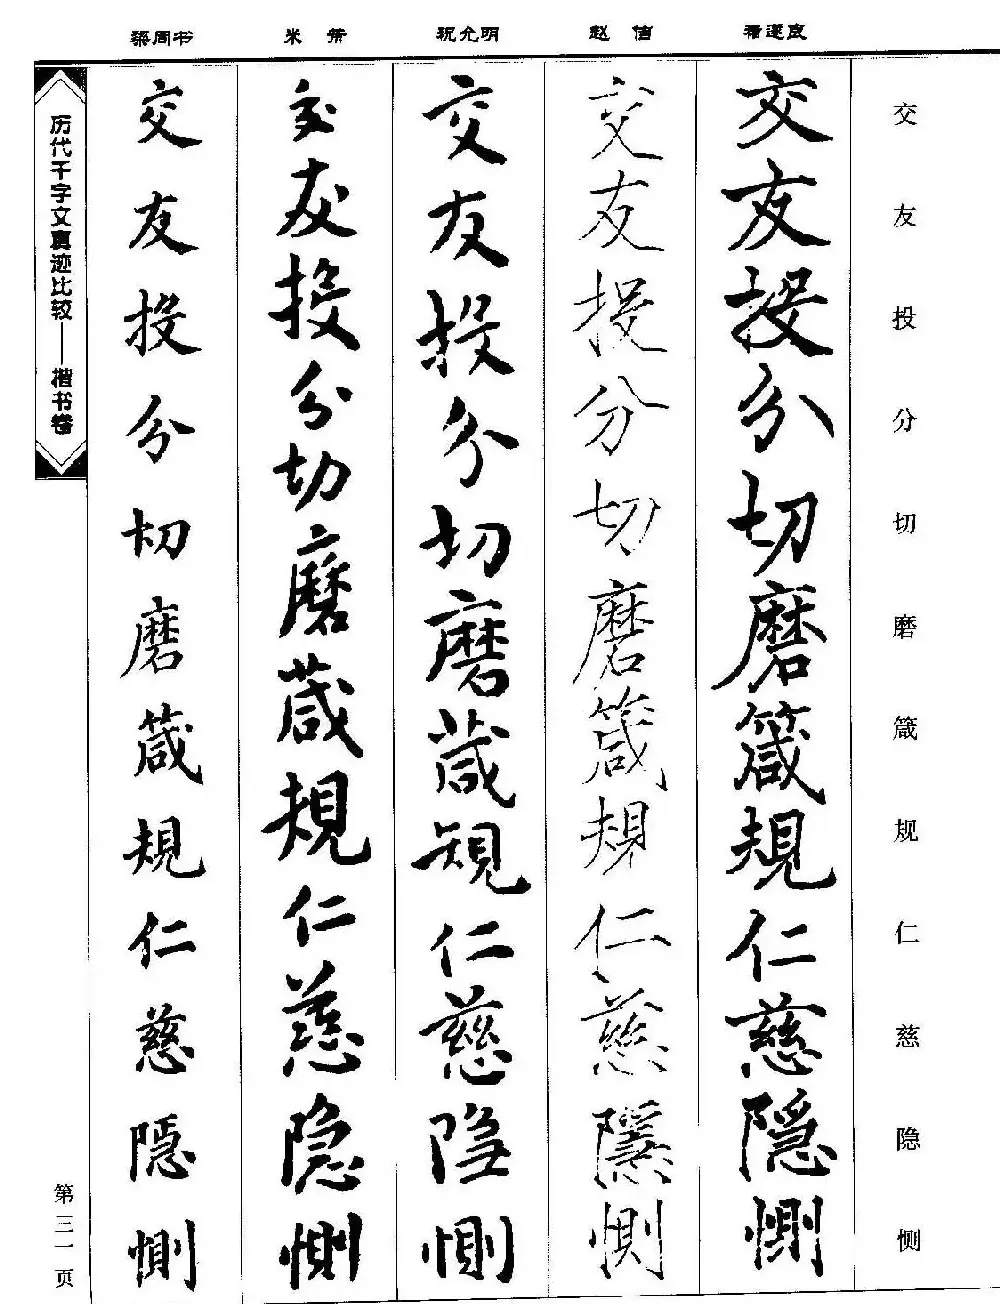 褚遂良
赵佶
祝允明
米芾
梁同书
交友投分切磨箴规仁慈隐恻
交友投分切磨箴規仁慈隠惻
交友投分切磨箴規仁慈隱惻
交友投分切磨葴規仁慈隐惻
交友投分切磨葴規仁慈隐惻
交友投分切磨箴規仁慈隱惻
历代千字文真迹比较——楷书卷
第三一页